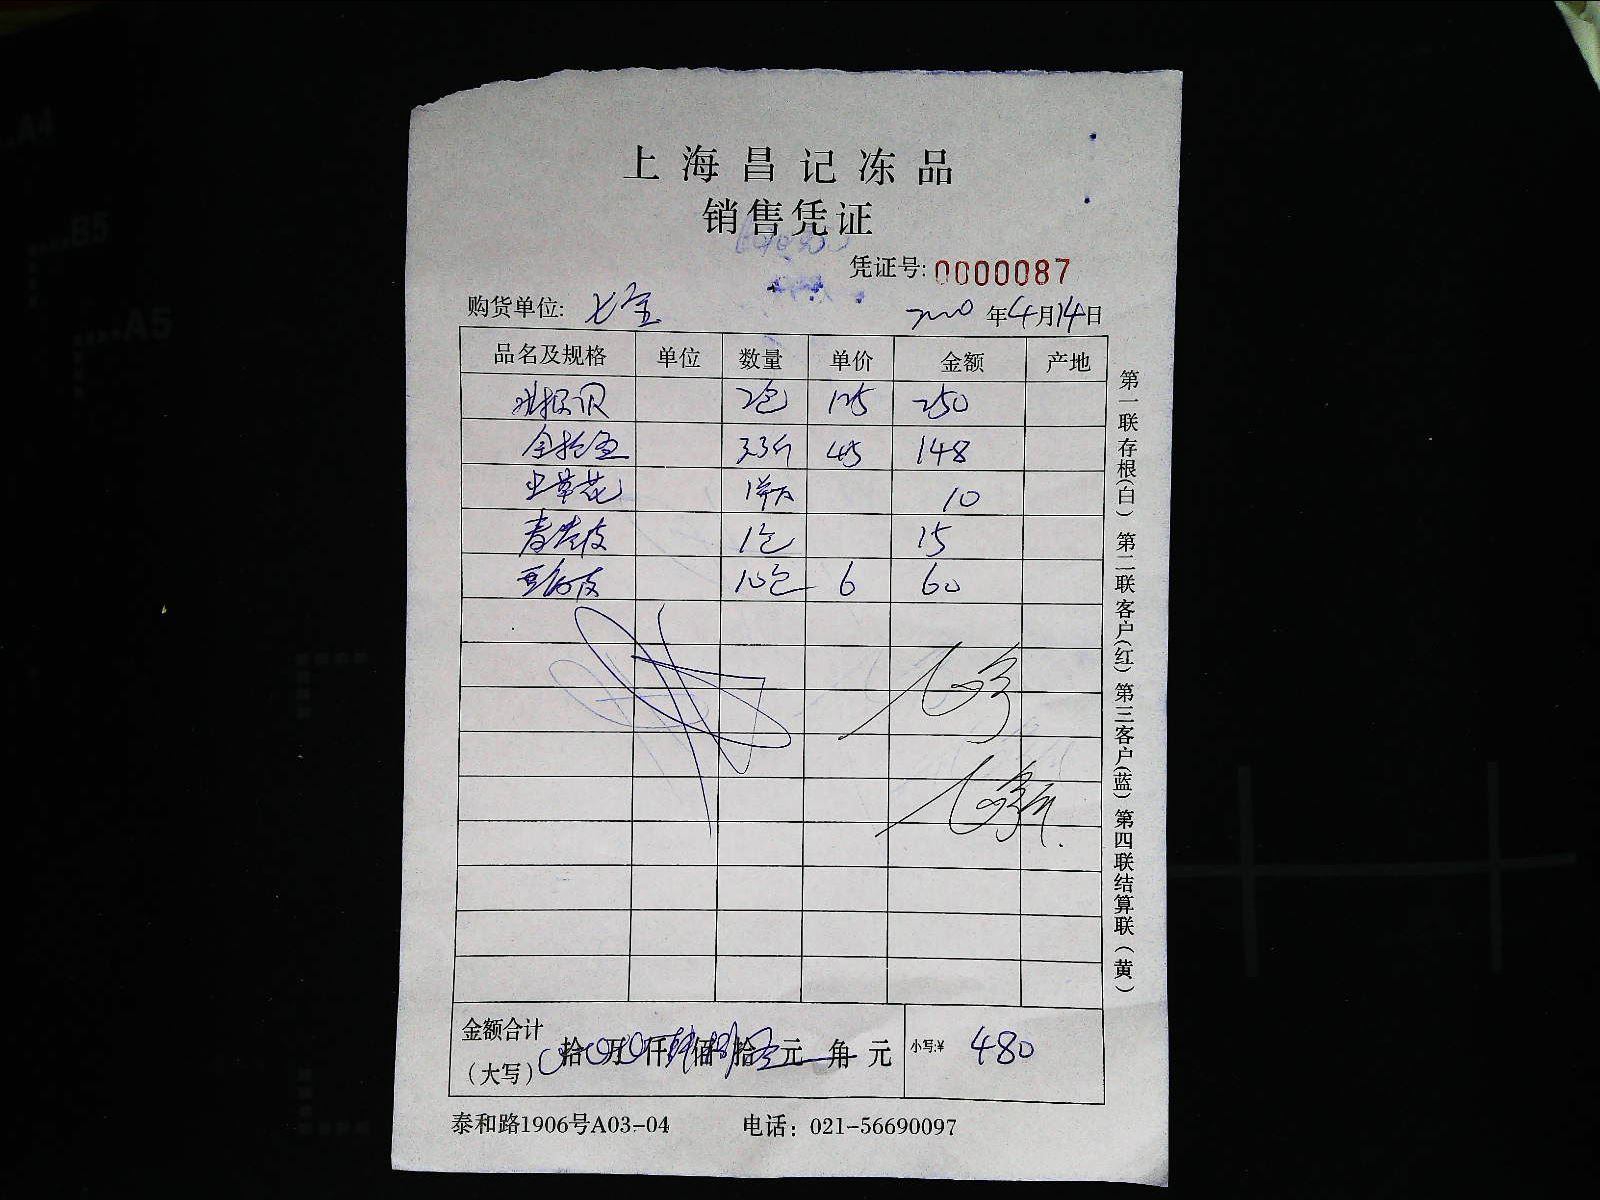 上海昌记冻品
销售凭证
凭证号: 0000087
购货单位: 七宝
年4月14日
品名及规格 单位 数量 单价 金额 产地
2包 125 250
3.3斤 45 148
虫草花 1 10
1包 15
10包 6 60
金额合计
(大写) 拾 万 仟 佰 拾 元 角 元 小写:¥ 480
泰和路1906号A03-04 电话: 021-56690097
第一联存根(白) 第二联客户(红) 第三客户(蓝) 第四联结算联(黄)
A4
B5
A5